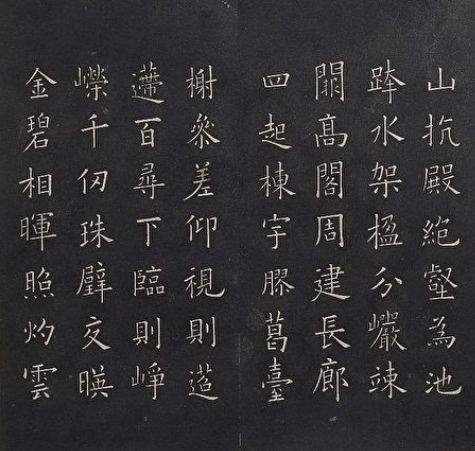 山抗殿絶壑為池
跨水架楹分巖竦
闕髙閣周建長廊
四起棟宇膠葛臺
榭叅差仰視則迢
遰百尋下臨則崢
嶸千仞珠璧交暎
金碧相暉照灼雲